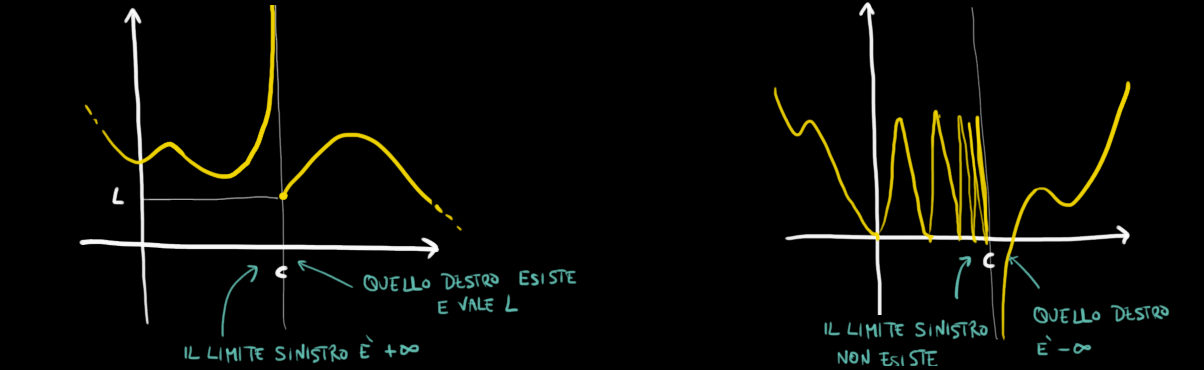 L
C
QUELLO DESTRO ESISTE
E VALE L
IL LIMITE SINISTRO È +∞
C
IL LIMITE SINISTRO
NON ESISTE
QUELLO DESTRO
È -∞